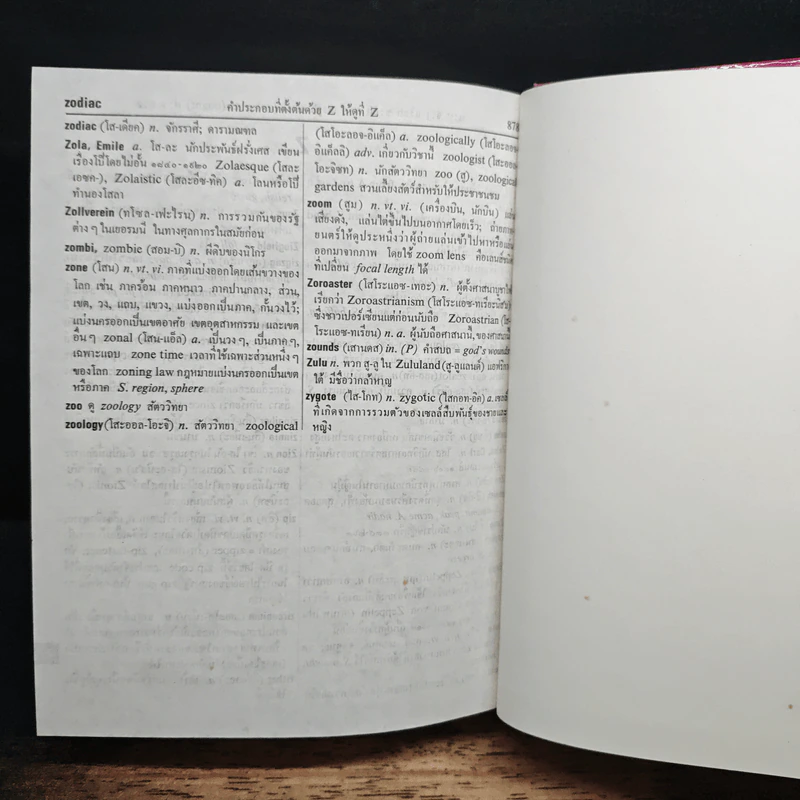 zodiac
คำประกอบที่ตั้งต้นด้วย Z ให้ดูที่ Z
zodiac (โส-เดียค) n. จักรราศี; ดารามณฑล
Zola, Emile a. โส-ละ นักประพันธ์ฝรั่งเศส เขียน
เรื่องโป๊โดยไม่อั้น ๑๘๔๐-๑๙๒๐ Zolaesque (โสละ
เอซค-), Zolaistic (โสละอิ๊ซ-ทิค) a. โลนหรือโป๊
ทำนองโสลา
Zollverein (ทโซล-เฟะไรน) n. การรวมกันของรัฐ
ต่างๆ ในเยอรมนี ในทางศุลกากรในสมัยก่อน
zombi, zombie (สอม-บิ) n. ผีดิบของนิโกร
zone (โสน) n. vt. vi. ภาคที่แบ่งออกโดยเส้นขวางของ
โลก เช่น ภาคร้อน ภาคหนาว ภาคปานกลาง, ส่วน,
เขต, วง, แถบ, แขวง, แบ่งออกเป็นภาค, กั้นวงไว้;
แบ่งนครออกเป็นเขตอาศัย เขตอุตสาหกรรม และเขต
อื่นๆ zonal (โสน-แอ็ล) a. เป็นวงๆ, เป็นภาคๆ,
เฉพาะแถบ zone time เวลาที่ใช้เฉพาะส่วนหนึ่งๆ
ของโลก zoning law กฎหมายแบ่งนครออกเป็นเขต
หรือภาค S. region, sphere
zoo ดู zoology สัตววิทยา
zoology (โสะออล-โอะจิ) n. สัตววิทยา zoological
(โสโอะลอจ-อิแค็ล) a. zoologically (โสโอะลอจ-
อิแค็ลลิ) adv. เกี่ยวกับวิชานี้ zoologist (โสะออล-
โอะจิซท) n. นักสัตววิทยา zoo (สู), zoological
gardens สวนเลี้ยงสัตว์สำหรับให้ประชาชนชม
zoom (สูม) n. vt. vi. (เครื่องบิน, นักบิน)
เสียงดัง, แล่นไต่ขึ้นไปบนอากาศโดยเร็ว; ถ่ายภาพ
ยนตร์ให้ดูประหนึ่งว่าผู้ถ่ายแล่นเข้าไปหาหรือแล่น
ออกมาจากภาพ โดยใช้ zoom lens คือเลนส์ชนิด
ที่เปลี่ยน focal length ได้
Zoroaster (โสโรแอซ-เทอะ) n. ผู้ตั้งศาสนาบูชาไฟ
เรียกว่า Zoroastrianism (โสโรแอซ-ทเรียะนิสม)
ซึ่งชาวเปอร์เซียนแต่ก่อนนับถือ Zoroastrian (โส-
โรแอซ-ทเรียน) n. a. ผู้นับถือศาสนานี้, ของศาสนานี้
zounds (เสานดส) in. (P) คำสบถ = god's wounds
Zulu n. พวก สู-ลู ใน Zululand (สู-ลูแลนด์)
ใต้ มีชื่อว่ากล้าหาญ
zygote (ไส-โกท) n. zygotic (ไสกอท-อิค) a. เซลล์
ที่เกิดจากการรวมตัวของเซลล์สืบพันธุ์ของชายและ
หญิง